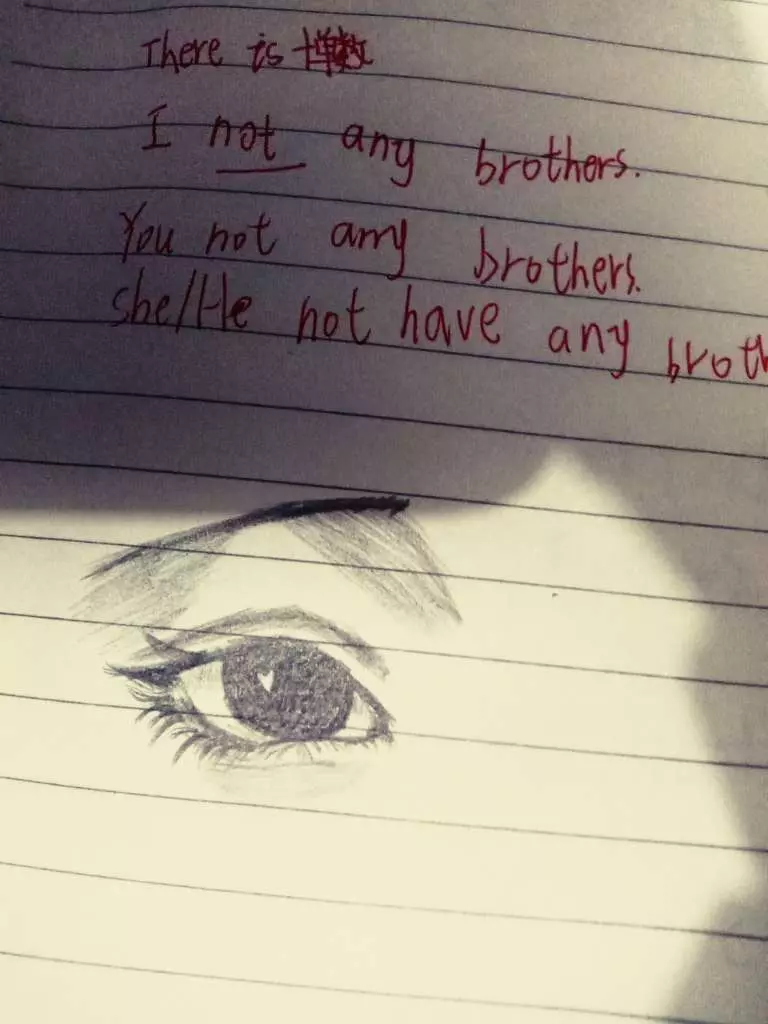 There is +单数
I not any brothers.
You not any brothers.
she/He not have any broth